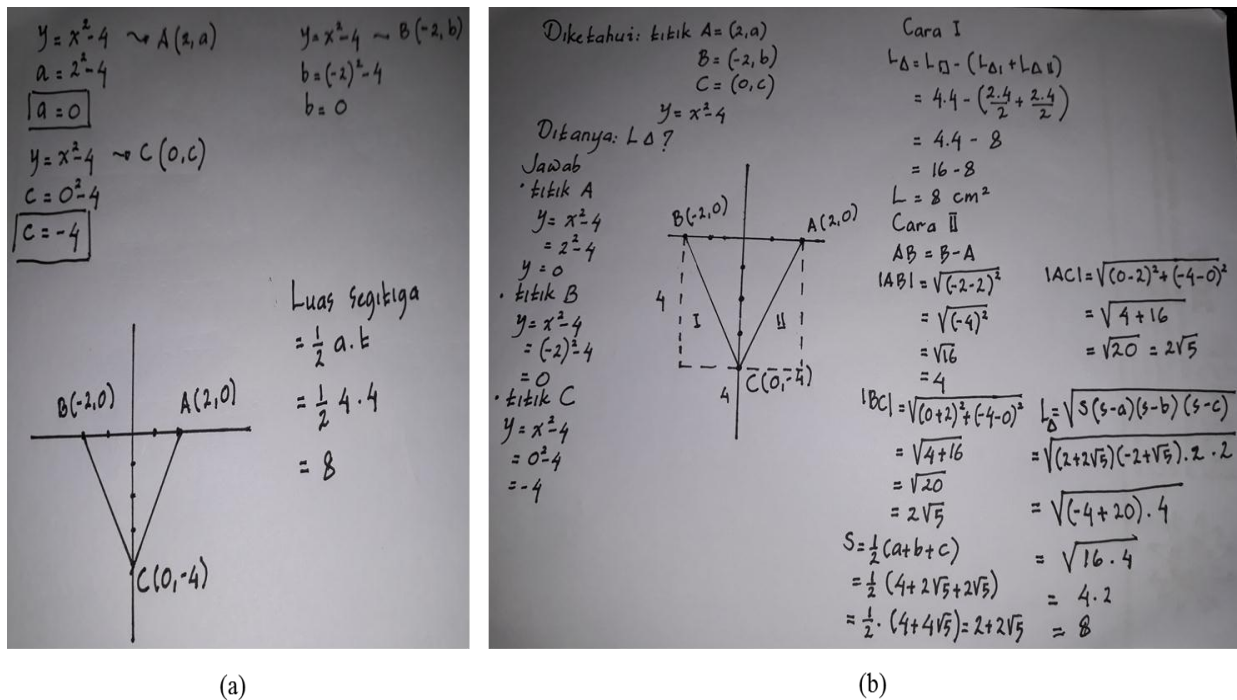 y = x²-4 ~> A(2,a)
a = 2²-4
a = 0
y = x²-4 ~> C(0,c)
c = 0²-4
c = -4
y = x²-4 ~ B(-2,b)
b = (-2)²-4
b = 0
Luas segitiga
= 1/2 a.t
= 1/2 4.4
= 8
B(-2,0)
A(2,0)
C(0,-4)
(a)
Diketahui: titik A = (2,a)
B = (-2,b)
C = (0,c)
y = x²-4
Ditanya: L∆?
Jawab
• titik A
y = x²-4
= 2²-4
y = 0
• titik B
y = x²-4
= (-2)²-4
= 0
• titik C
y = x²-4
= 0²-4
= -4
B(-2,0)
A(2,0)
4
I
II
C(0,-4)
4
Cara I
L∆ = L□ - (L∆I + L∆II)
= 4.4 - (2.4/2 + 2.4/2)
= 4.4 - 8
= 16 - 8
L = 8 cm²
Cara II
AB = B-A
|AB| = √(-2-2)²
= √(-4)²
= √16
= 4
|AC| = √(0-2)²+(-4-0)²
= √4+16
= √20 = 2√5
|BC| = √(0+2)²+(-4-0)²
= √4+16
= √20
= 2√5
S = 1/2 (a+b+c)
= 1/2 (4+2√5+2√5)
= 1/2 . (4+4√5) = 2+2√5
L∆ = √s(s-a)(s-b)(s-c)
= √(2+2√5)(-2+√5).2.2
= √(-4+20).4
= √16.4
= 4.2
= 8
(b)